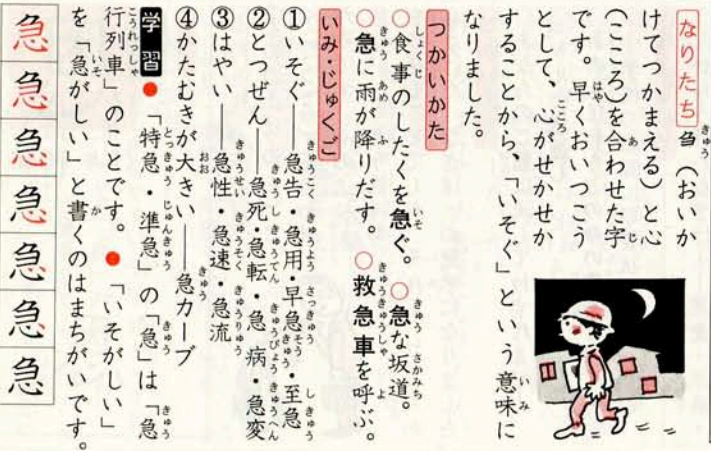 なりたち 刍（おいか
けてつかまえる）と心
（こころ）を合わせた字
です。早くおいつこう
として、心がせかせか
することから、「いそぐ」という意味に
なりました。
つかいかた
○食事のしたくを急ぐ。 ○急な坂道。
○急に雨が降りだす。 ○救急車を呼ぶ。
いみ・じゅくご
①いそぐ――急告・急用・早急・至急
②とつぜん――急死・急転・急病・急変
③はやい――急性・急速・急流
④かたむきが大きい――急カーブ
学習 ●「特急・準急」の「急」は「急
行列車」のことです。 ●「いそがしい」
を「急がしい」と書くのはまちがいです。
急急急急急急急